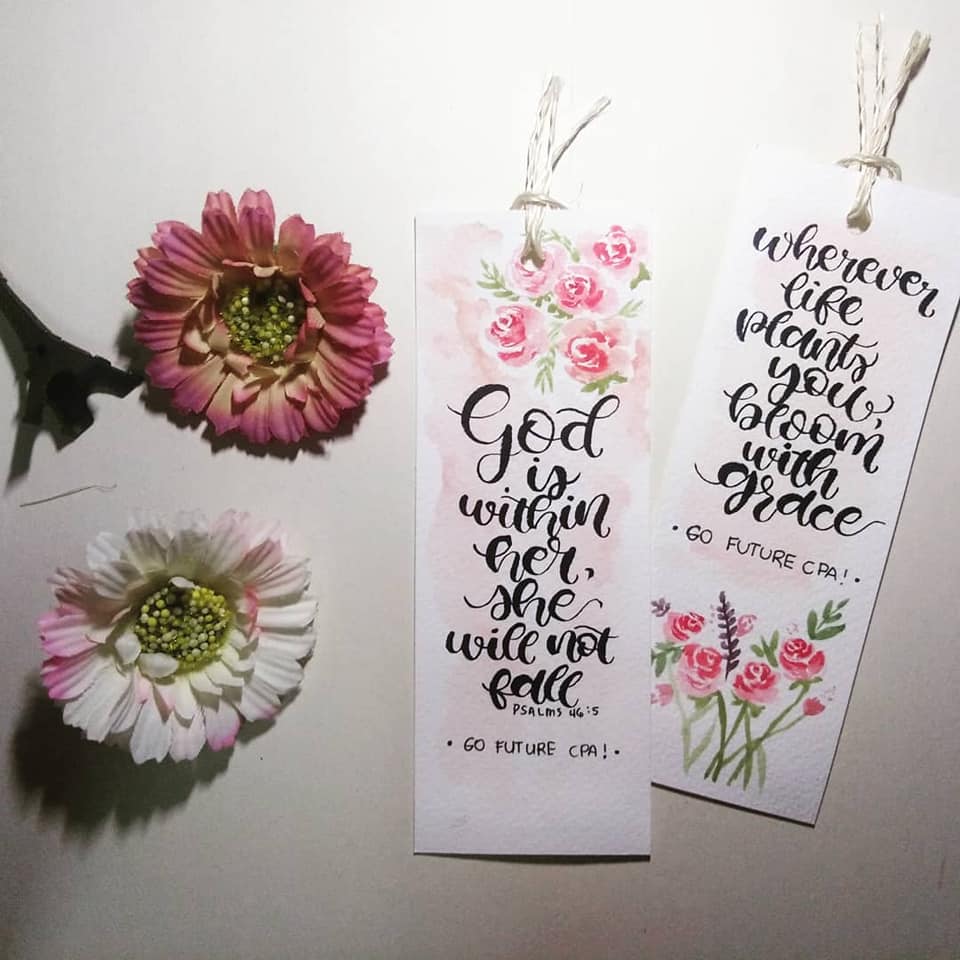 God
is
within
her,
she
will not
fall
PSALMS 46:5
• GO FUTURE CPA! •
wherever
life
plants
you,
bloom
with
grace
• GO FUTURE CPA! •